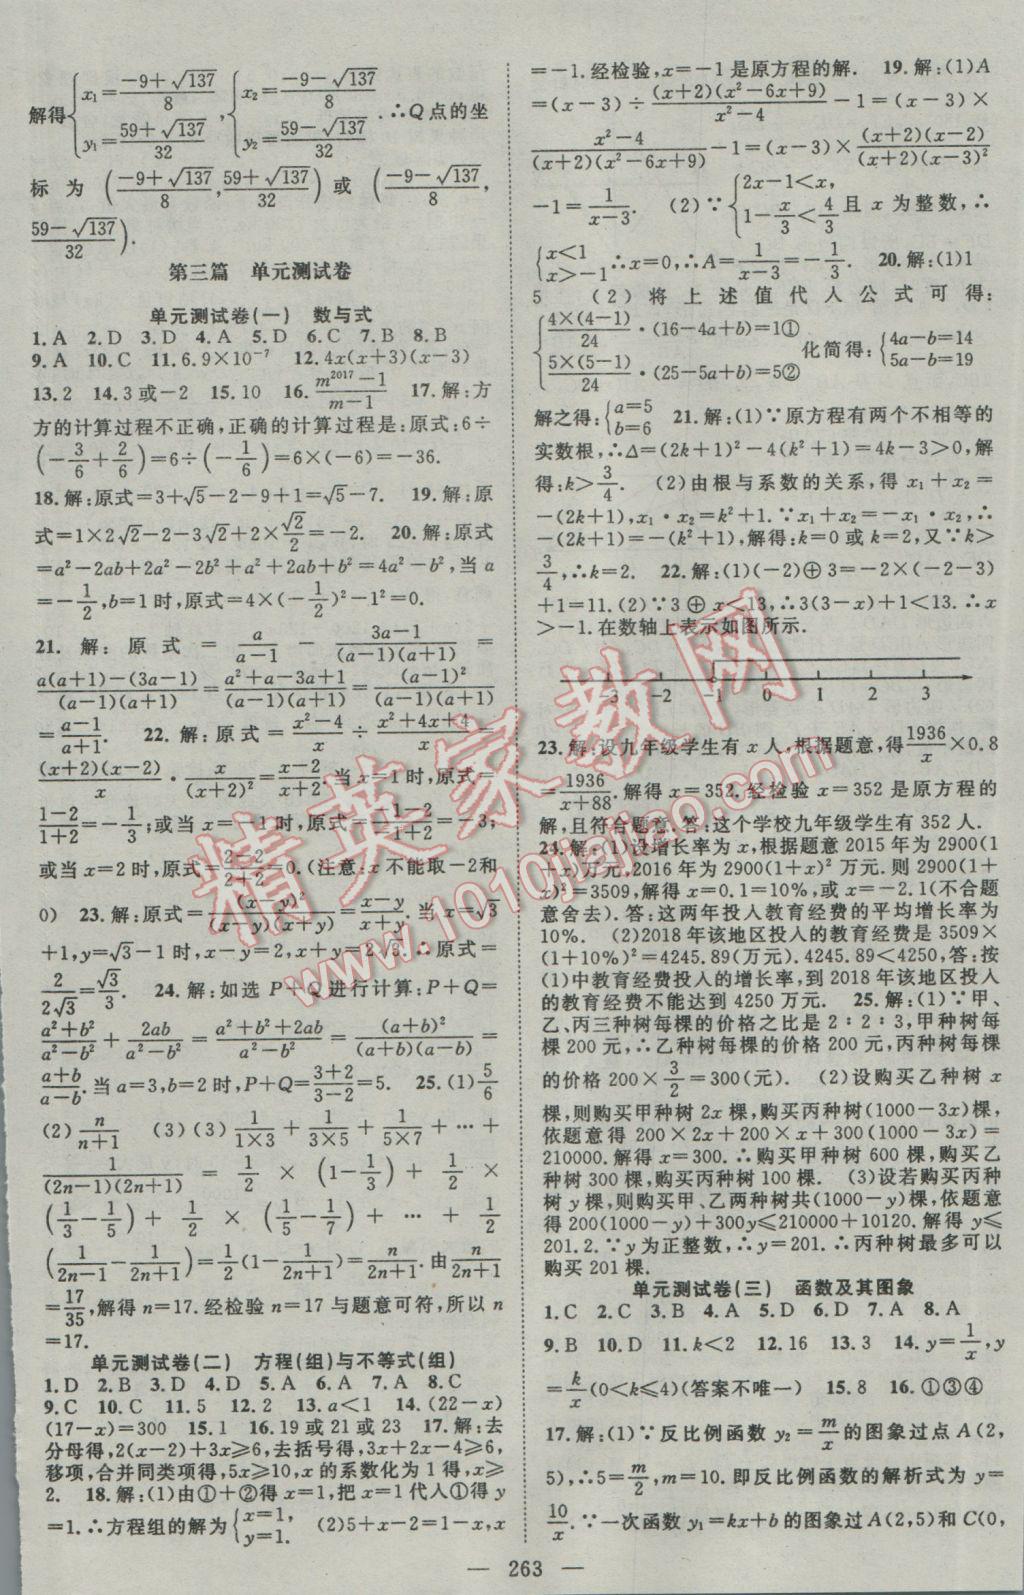 解得{x₁=(-9+√137)/8, y₁=(59+√137)/32, {x₂=(-9-√137)/8, y₂=(59-√137)/32. ∴Q点的坐
标为((-9+√137)/8, (59+√137)/32)或((-9-√137)/8,
(59-√137)/32).
第三篇 单元测试卷
单元测试卷(一) 数与式
1. A 2. D 3. D 4. D 5. B 6. C 7. B 8. B
9. A 10. C 11. 6.9×10⁻⁷ 12. 4x(x+3)(x-3)
13. 2 14. 3或-2 15. 10 16. (m²⁰¹⁷-1)/(m-1) 17. 解:方
方的计算过程不正确,正确的计算过程是:原式:6÷
(-3/6+2/6)=6÷(-1/6)=6×(-6)=-36.
18. 解:原式=3+√5-2-9+1=√5-7. 19. 解:原
式=1×2√2-2-3√2+2×√2/2=-2. 20. 解:原式
=a²-2ab+2a²-2b²+a²+2ab+b²=4a²-b²,当a
=-1/2,b=1时,原式=4×(-1/2)²-1²=0.
21. 解:原式=a/(a-1)-(3a-1)/((a-1)(a+1))=
(a(a+1)-(3a-1))/((a-1)(a+1))=(a²+a-3a+1)/((a-1)(a+1))=(a-1)²/((a-1)(a+1))
=(a-1)/(a+1). 22. 解:原式=(x²-4)/x÷(x²+4x+4)/x=
((x+2)(x-2))/x·x/(x+2)²=(x-2)/(x+2),当x=1时,原式=
(1-2)/(1+2)=-1/3;或当x=-1时,原式=(-1-2)/(-1+2)=-3;
或当x=2时,原式=(2-2)/(2+2)=0.(注意:x不能取-2和
0) 23. 解:原式=(x-y)²/((x-y)(x+y))=(x-y)/(x+y).当x=√3
+1,y=√3-1时,x-y=2,x+y=2√3,∴原式=
2/(2√3)=√3/3. 24. 解:如选P+Q进行计算:P+Q=
(a²+b²)/(a²-b²)+2ab/(a²-b²)=(a²+b²+2ab)/(a²-b²)=(a+b)²/((a+b)(a-b))=
(a+b)/(a-b).当a=3,b=2时,P+Q=(3+2)/(3-2)=5. 25. (1)5/6
(2)n/(n+1) (3)(3)1/(1×3)+1/(3×5)+1/(5×7)+…+
1/((2n-1)(2n+1))=1/2×(1-1/3)+1/2×
(1/3-1/5)+1/2×(1/5-1/7)+…+1/2
(1/(2n-1)-1/(2n+1))=1/2(1-1/(2n+1))=n/(2n+1).由n/(2n+1)
=17/35,解得n=17.经检验n=17与题意可符,所以n
=17.
单元测试卷(二) 方程(组)与不等式(组)
1. D 2. B 3. D 4. D 5. A 6. A 7. A 8. C
9. C 10. C 11. 5 12. 2 13. a<1 14. (22-x)
(17-x)=300 15. 1 16. 19或21或23 17. 解:去
分母得,2(x-2)+3x≥6,去括号得,3x+2x-4≥6,
移项,合并同类项得,5x≥10,x的系数化为1得,x≥
2. 18. 解:(1)由①+②得x=1,把x=1代人①得y
=1.∴方程组的解为{x=1, y=1. (2)5+x-2=1-x,x
=-1.经检验,x=-1是原方程的解. 19. 解:(1)A
=(x-3)÷((x+2)(x²-6x+9))/(x²-4)-1=(x-3)×
(x²-4)/((x+2)(x²-6x+9))-1=(x-3)×((x+2)(x-2))/((x+2)(x-3)²)
-1=1/(x-3). (2)∵{2x-1<x, 1-x/3<4/3 且x为整数,∴
{x<1 x>-1 ∴x=0,∴A=1/(x-3)=-1/3. 20. 解:(1)1
5 (2)将上述值代人公式可得:
{(4×(4-1))/24·(16-4a+b)=1① (5×(5-1))/24·(25-5a+b)=5② 化简得:{4a-b=14 5a-b=19
解之得:{a=5 b=6 21. 解:(1)∵原方程有两个不相等的
实数根,∴Δ=(2k+1)²-4(k²+1)=4k-3>0,解
得:k>3/4. (2)由根与系数的关系,得x₁+x₂=
-(2k+1),x₁·x₂=k²+1.∵x₁+x₂=-x₁·x₂,∴
-(2k+1)=-(k²+1),解得:k=0或k=2,又∵k>
3/4,∴k=2. 22. 解:(1)(-2)⊕3=-2×(-2-3)
+1=11.(2)∵3⊕x<13,∴3(3-x)+1<13.∴x
>-1.在数轴上表示如图所示.
-3 -2 -1 0 1 2 3
23. 解:设九年级学生有x人,根据题意,得1936/x×0.8
=1936/(x+88).解得x=352.经检验x=352是原方程的
解,且符合题意.答:这个学校九年级学生有352人.
24. 解:(1)设增长率为x,根据题意2015年为2900(1
+x)万元,2016年为2900(1+x)²万元.则2900(1+
x)²=3509,解得x=0.1=10%,或x=-2.1(不合题
意舍去).答:这两年投人教育经费的平均增长率为
10%. (2)2018年该地区投人的教育经费是3509×
(1+10%)²=4245.89(万元).4245.89<4250,答:按
(1)中教育经费投人的增长率,到2018年该地区投人
的教育经费不能达到4250万元. 25. 解:(1)∵甲、
乙、丙三种树每棵的价格之比是2:2:3,甲种树每
棵200元,∴乙种树每棵的价格200元,丙种树每棵
的价格200×3/2=300(元). (2)设购买乙种树x
棵,则购买甲种树2x棵,购买丙种树(1000-3x)棵,
依题意得200×2x+200×x+300(1000-3x)=
210000.解得x=300.∴购买甲种树600棵,购买乙
种树300棵,购买丙种树100棵. (3)设若购买丙种
树y棵,则购买甲、乙两种树共(1000-y)棵,依题意
得200(1000-y)+300y≤210000+10120.解得y≤
201.2.∵y为正整数,∴y=201.∴丙种树最多可以
购买201棵.
单元测试卷(三) 函数及其图象
1. C 2. C 3. B 4. A 5. D 6. D 7. A 8. A
9. B 10. D 11. k<2 12. 16 13. 3 14. y=1/x,y
=k/x(0<k≤4)(答案不唯一) 15. 8 16. ①③④
17. 解:(1)∵反比例函数y₂=m/x的图象过点A(2,
5),∴5=m/2,m=10.即反比例函数的解析式为y=
10/x.∵一次函数y₁=kx+b的图象过A(2,5)和C(0,
— 263 —
精英家教网
www.1010jiajiao.com